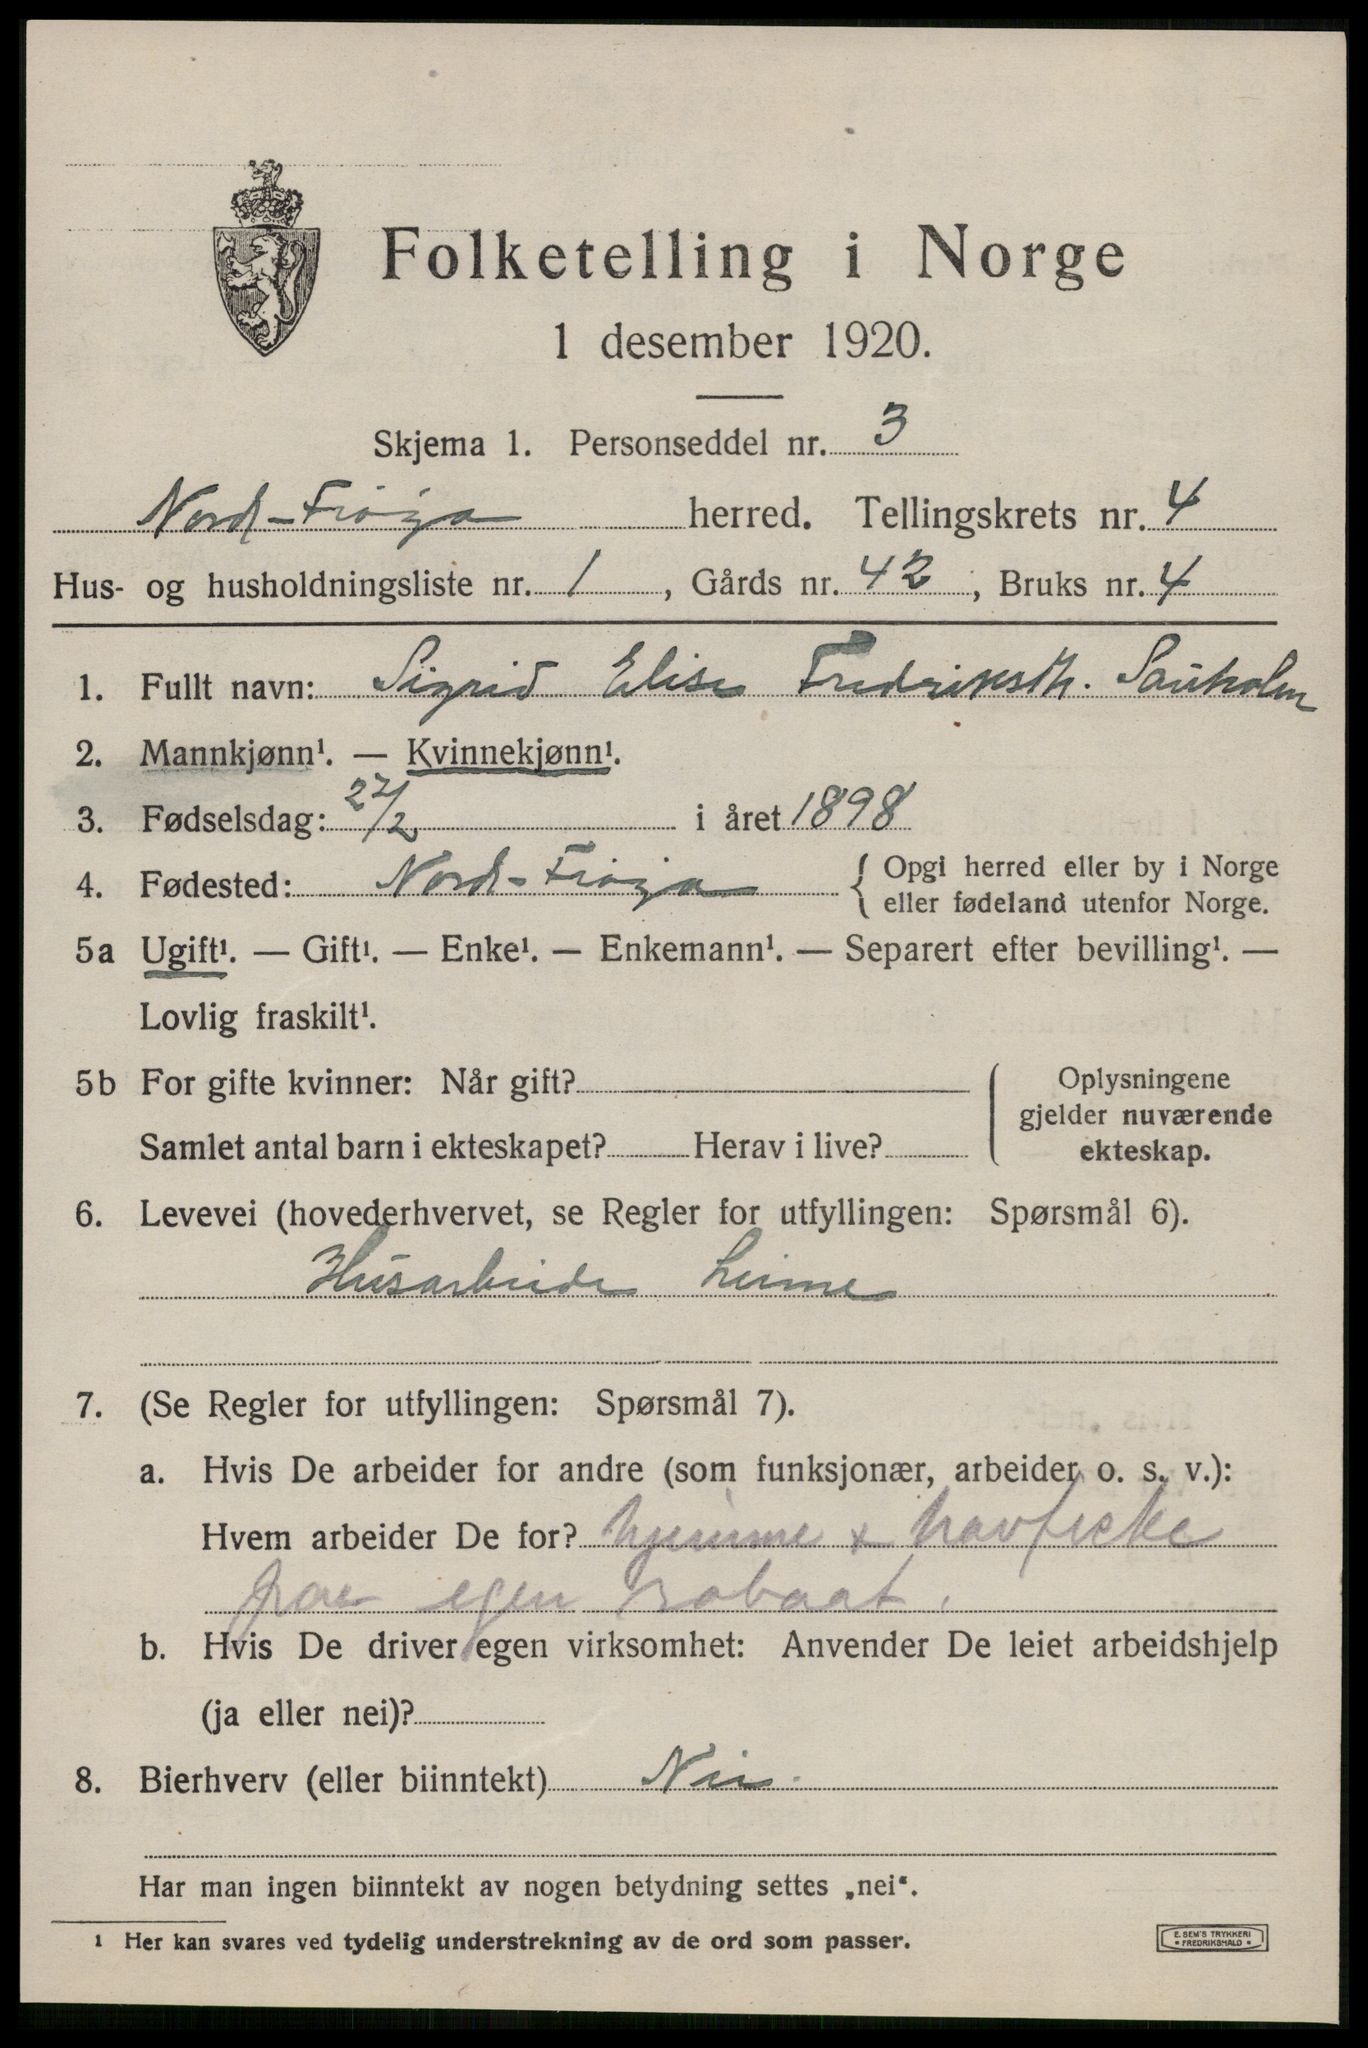 Folketelling i Norge
1 desember 1920.
Skjema 1. Personseddel nr. 3
Nord-Frøya herred. Tellingskrets nr. 4
Hus- og husholdningsliste nr. 1, Gårds nr. 42, Bruks nr. 4
1. Fullt navn: Sigrid Elise Fredriksth. Sauholm
2. Mannkjønn¹. — Kvinnekjønn¹.
3. Fødselsdag: 27/2 i året 1898
4. Fødested: Nord-Frøya { Opgi herred eller by i Norge
eller fødeland utenfor Norge.
5a Ugift¹. — Gift¹. — Enke¹. — Enkemann¹. — Separert efter bevilling¹. —
Lovlig fraskilt¹.
5b For gifte kvinner: Når gift?
Samlet antal barn i ekteskapet? Herav i live?
Oplysningene
gjelder nuværende
ekteskap.
6. Levevei (hovederhvervet, se Regler for utfyllingen: Spørsmål 6).
Husarbeide
7. (Se Regler for utfyllingen: Spørsmål 7).
a. Hvis De arbeider for andre (som funksjonær, arbeider o. s. v.):
Hvem arbeider De for? hjemme + havfiske
paa egen robaat.
b. Hvis De driver egen virksomhet: Anvender De leiet arbeidshjelp
(ja eller nei)?
8. Bierhverv (eller biinntekt) Nei.
Har man ingen biinntekt av nogen betydning settes „nei“.
¹ Her kan svares ved tydelig understrekning av de ord som passer.
E. SEM'S TRYKKERI
• FREDRIKSHALD •